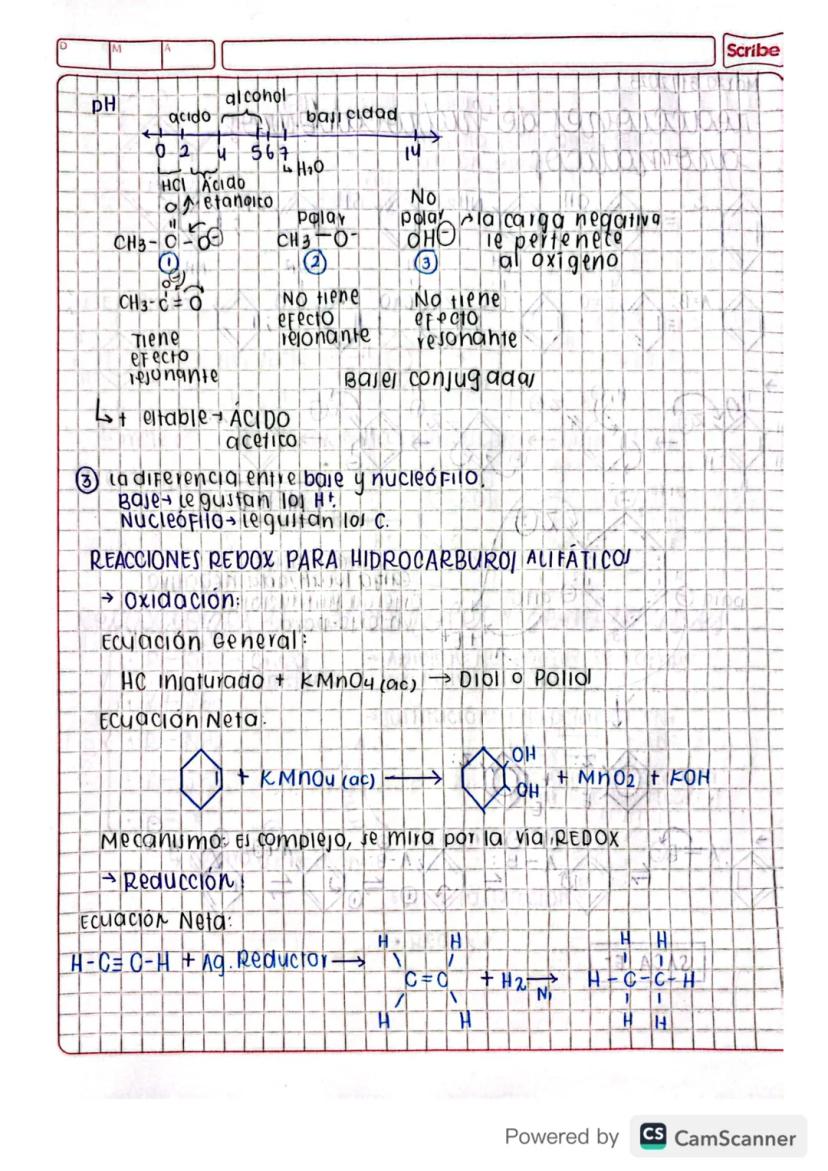 D M A
Scribe
pH
acido alcohol basicidad
0 2 4 5 6 7 14
↳ H₂O
HCl Ácido etanoico
O
CH₃ - C - O⊖
①
polar
CH₃ - O-
②
No polar
OH⊖
③
→ la carga negativa
le pertenece
al oxigeno
O⊖
CH₃-C = O
Tiene
efecto
resonante
NO tiene
efecto
resonante
No tiene
efecto
resonante
Bases conjugadas
↳ + estable → ÁCIDO
acetico
③ la diferencia entre base y nucleófilo.
Base → le gustan los H⁺.
Nucleófilo → le gustan los C.
REACCIONES REDOX PARA HIDROCARBUROS ALIFÁTICOS
→ Oxidación:
Ecuación General:
HC insaturado + KMnO₄ (ac) → Diol o Poliol
Ecuación Neta:
+ KMnO₄ (ac) → OH OH + MnO₂ + KOH
Mecanismo: Es complejo, se mira por la vía REDOX
→ Reducción:
Ecuación Neta:
H-C≡C-H + Ag. Reductor → H H C=C H H + H₂ → Ni H H H-C-C-H H H
Powered by CS CamScanner